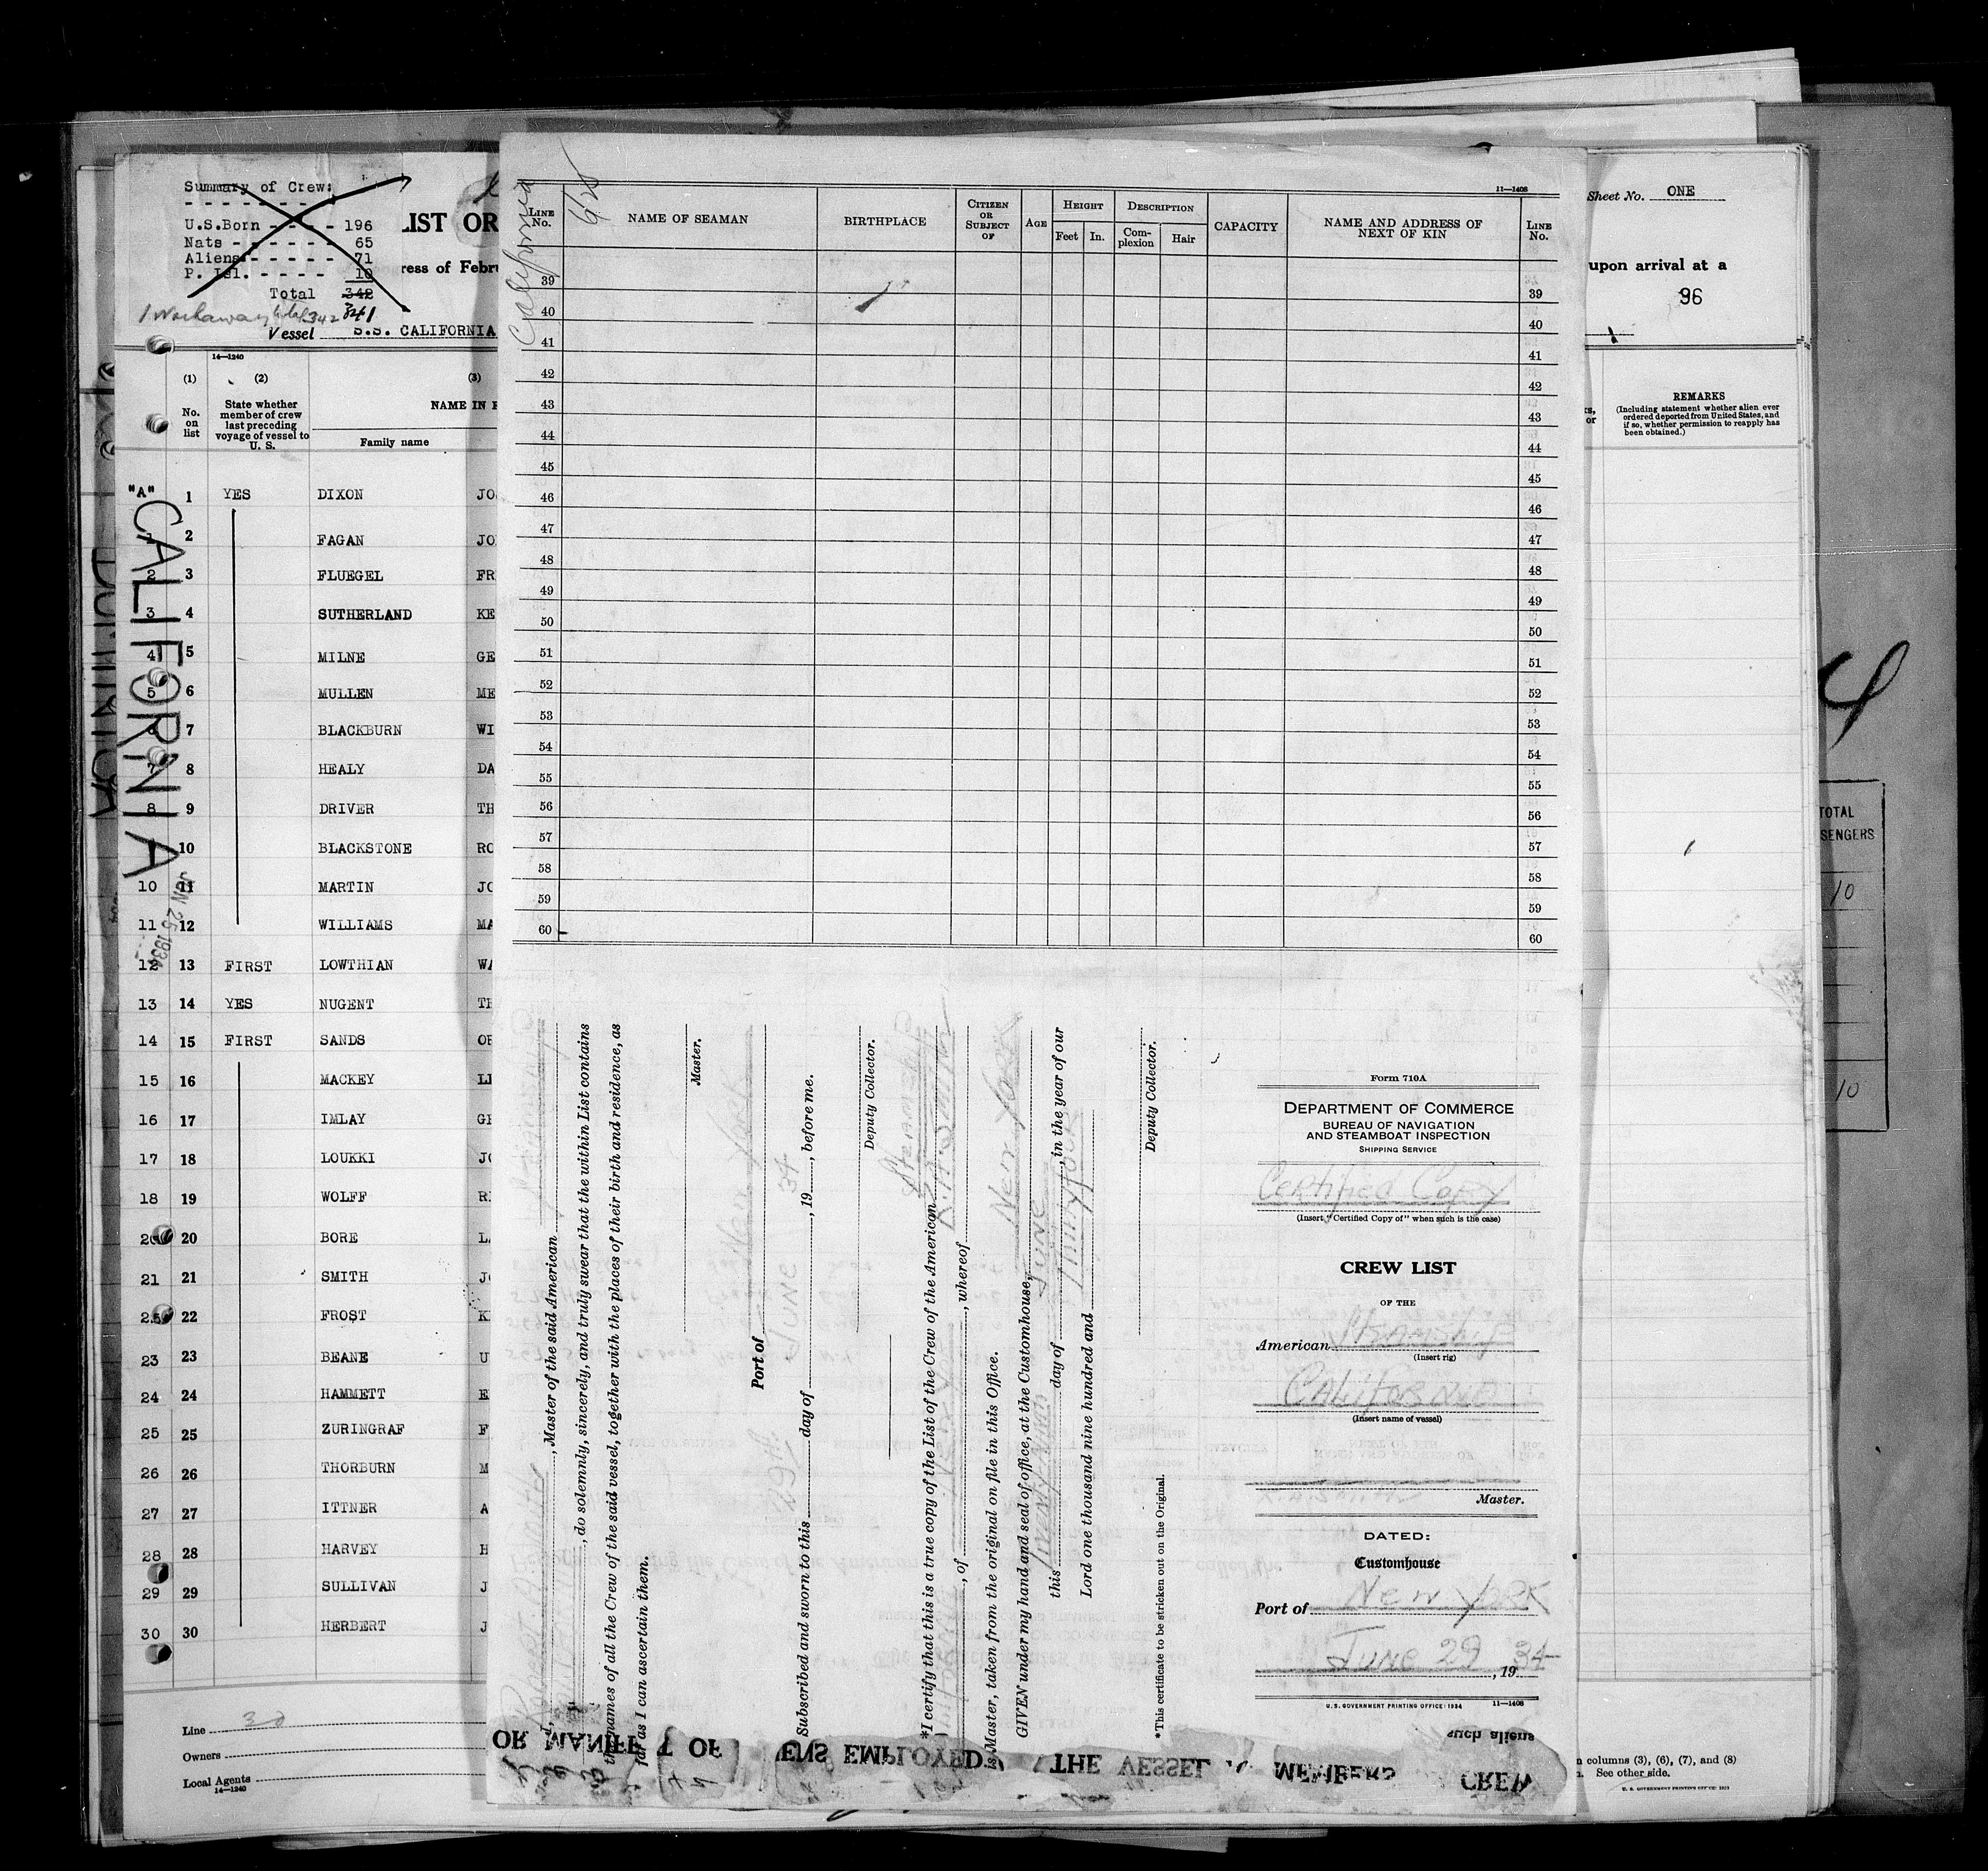 Summary of Crew:
- - - - - - -
U.S.Born - - - - 196
Nats - - - - - - 65
Aliens - - - - - 71
P. Isl. - - - - 10
Total 342
341
1 Workaway total 342
LIST OR
ress of Febru
Vessel S.S. CALIFORNIA
14—1240
(1) (2) (3)
No. on list
State whether member of crew last preceding voyage of vessel to U. S.
NAME IN F
Family name
"A" 1 YES DIXON JO
2 FAGAN JO
2 3 FLUEGEL FR
3 4 SUTHERLAND KE
4 5 MILNE GE
5 6 MULLEN ME
7 BLACKBURN WI
7 8 HEALY DA
8 9 DRIVER TH
10 BLACKSTONE RO
10 11 MARTIN JO
11 12 WILLIAMS MA
12 13 FIRST LOWTHIAN WA
13 14 YES NUGENT TH
14 15 FIRST SANDS OR
15 16 MACKEY LE
16 17 IMLAY GE
17 18 LOUKKI JO
18 19 WOLFF RI
20 20 BORE LA
21 21 SMITH JO
22 FROST K
23 23 BEANE U
24 24 HAMMETT E
25 25 ZURINGRAF F
26 26 THORBURN M
27 27 ITTNER A
28 28 HARVEY H
29 29 SULLIVAN J
30 30 HERBERT J
CALIFORNIA
JUN 25 1934
DOMINICA
Line 30
Owners
Local Agents
14—1240
California
11—1408
LINE No.
NAME OF SEAMAN
BIRTHPLACE
CITIZEN OR SUBJECT OF
AGE
HEIGHT
Feet In.
DESCRIPTION
Complexion Hair
CAPACITY
NAME AND ADDRESS OF NEXT OF KIN
LINE No.
39 39
40 40
41 41
42 42
43 43
44 44
45 45
46 46
47 47
48 48
49 49
50 50
51 51
52 52
53 53
54 54
55 55
56 56
57 57
58 58
59 59
60 60
I, Robert A. Smith, Master of the said American Steamship
California, do solemnly, sincerely, and truly swear that the within List contains
the names of all the Crew of the said vessel, together with the places of their birth and residence, as
far as I can ascertain them.
Master.
Port of New York
Subscribed and sworn to this 29th day of June, 19 34, before me.
Deputy Collector.
*I certify that this is a true copy of the List of the Crew of the American Steamship
California, of New York, whereof R. A. Smith
is Master, taken from the original on file in this Office.
GIVEN under my hand and seal of office, at the Customhouse, New York
this twenty ninth day of June, in the year of our
Lord one thousand nine hundred and Thirty four
Deputy Collector.
*This certificate to be stricken out on the Original.
Form 710A
DEPARTMENT OF COMMERCE
BUREAU OF NAVIGATION
AND STEAMBOAT INSPECTION
SHIPPING SERVICE
Certified Copy
(Insert "Certified Copy of" when such is the case)
CREW LIST
OF THE
American Steamship
(Insert rig)
California
(Insert name of vessel)
Master.
DATED:
Customhouse
Port of New York
June 29, 19 34
U. S. GOVERNMENT PRINTING OFFICE: 1934 11—1408
such aliens
OR MANIFEST OF ALIENS EMPLOYED THE VESSEL MEMBERS CREW
Sheet No. ONE
upon arrival at a
96
REMARKS
(Including statement whether alien ever ordered deported from United States, and if so, whether permission to reapply has been obtained.)
n columns (3), (6), (7), and (8)
See other side.
U. S. GOVERNMENT PRINTING OFFICE
4
TOTAL
SENGERS
10
10